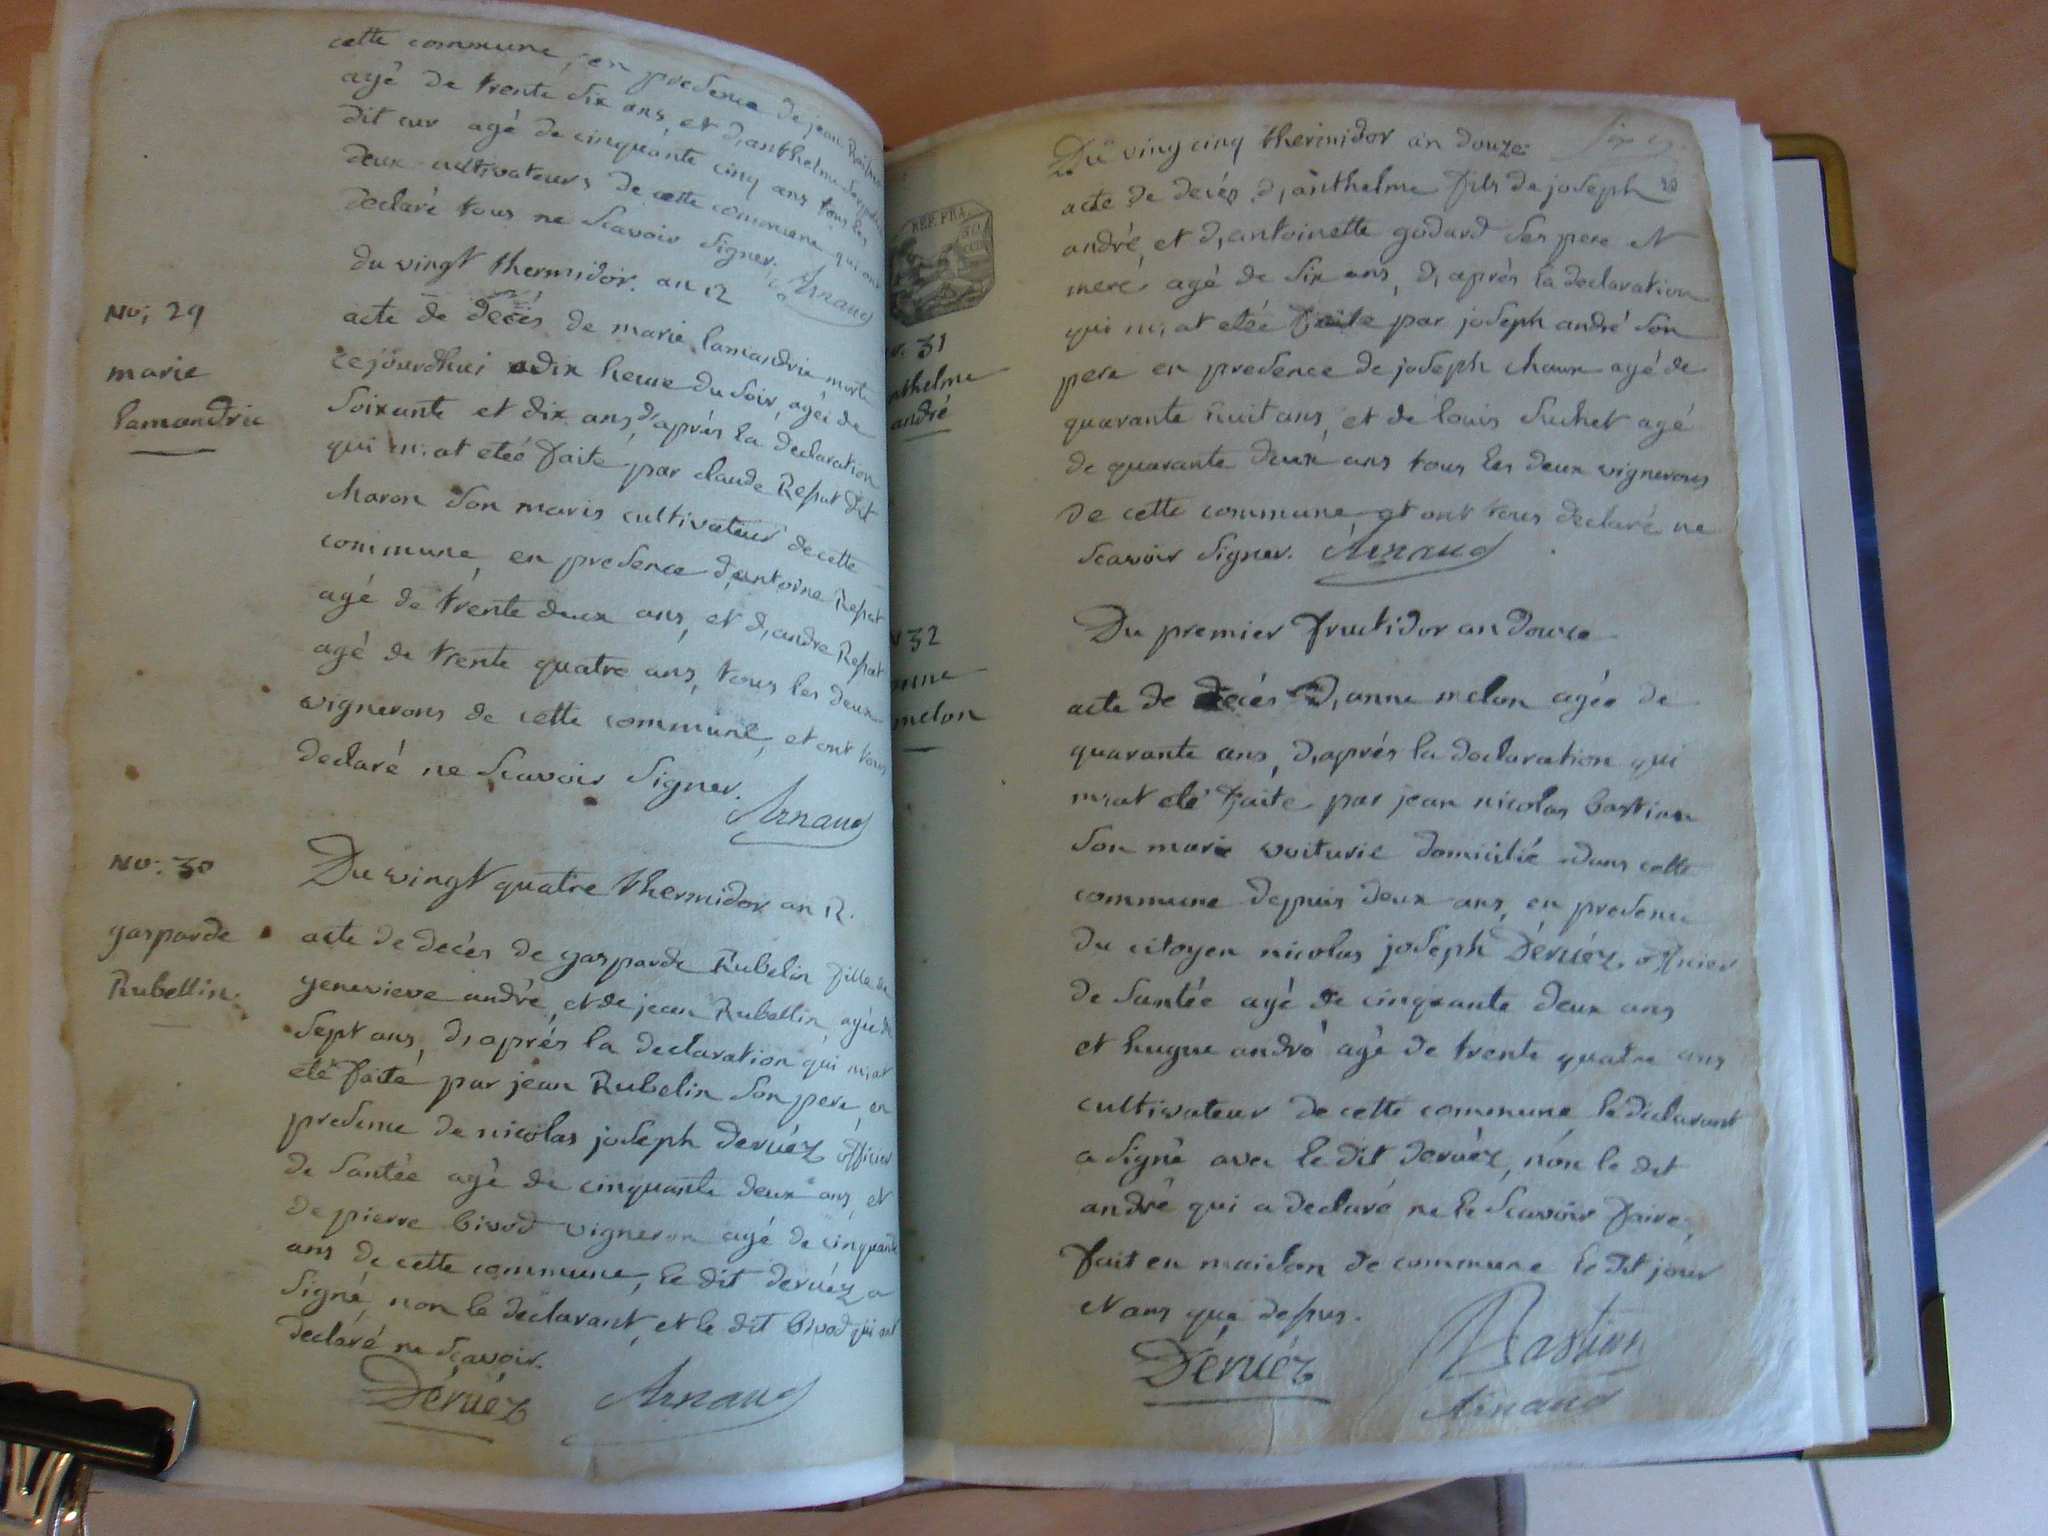 cette commune, en presence de jean
agé de trente six ans, et d,anthelme
dit cur agé de cinquante cinq ans tous les
deux cultivateurs de cette commune qui ont
declaré tous ne scavoir signer.
Arnaud
du vingt thermidor. an 12
No; 29
marie
lamandrie
acte de decés de marie lamandrie morte
cejourdhui a dix heure du soir, agée de
soixante et dix ans, d'aprés la declaration
qui m,at eteé faite par claude Reput dit
Maron son maris cultivateur de cette
commune, en presence d,antoine Reput
agé de trente deux ans, et d,andre Reput
agé de trente quatre ans, tous les deux
vignerons de cette commune, et ont tous
declaré ne scavoir signer.
Arnaud
No: 30
gasparde
Rubellin
Du vingt quatre thermidor an 12.
acte de decés de gasparde Rubelin fille de
genevieve andré, et de jean Rubellin, agée de
sept ans, d,aprés la declaration qui m,at
eté faite par jean Rubelin son pere, en
presence de nicolas joseph deruéz officier
de santée agé de cinquante deux ans, et
de pierre bivod vigneron agé de cinquante
ans de cette commune, le dit deruéz a
signé, non le declarant, et le dit bivod qui ont
declaré ne scavoir.
Déruéz Arnaud
REP. FRA.
31
anthelme
andré
Du vingcinq thermidor an douze
20
acte de decés d,anthelme fils de joseph
andré, et d,antoinette godard ses pere et
meré agé de six ans, d,aprés la declaration
qui m,at eteé faite par joseph andré son
pere en presence de joseph chaux agé de
quarante huit ans, et de louis suchet agé
de quarante deux ans tous les deux vignerons
de cette commune, et ont tous declaré ne
scavoir signer. Arnaud
32
anne
melon
Du premier fructidor an douze
acte de decés d,anne melon agée de
quarante ans, d,aprés la declaration qui
m,at eté faite par jean nicolas bastian
son mari voiturié domicilié dans cette
commune depuis deux ans, en presence
du citoyen nicolas joseph Déruéz, officier
de santée agé de cinquante deux ans
et hugue andré agé de trente quatre ans
cultivateur de cette commune le déclarant
a signé avec le dit deruéz, non le dit
andré qui a declaré ne le scavoir faire,
fait en maison de commune le dit jour
et ans que desus.
Déruéz Bastian
Arnaud